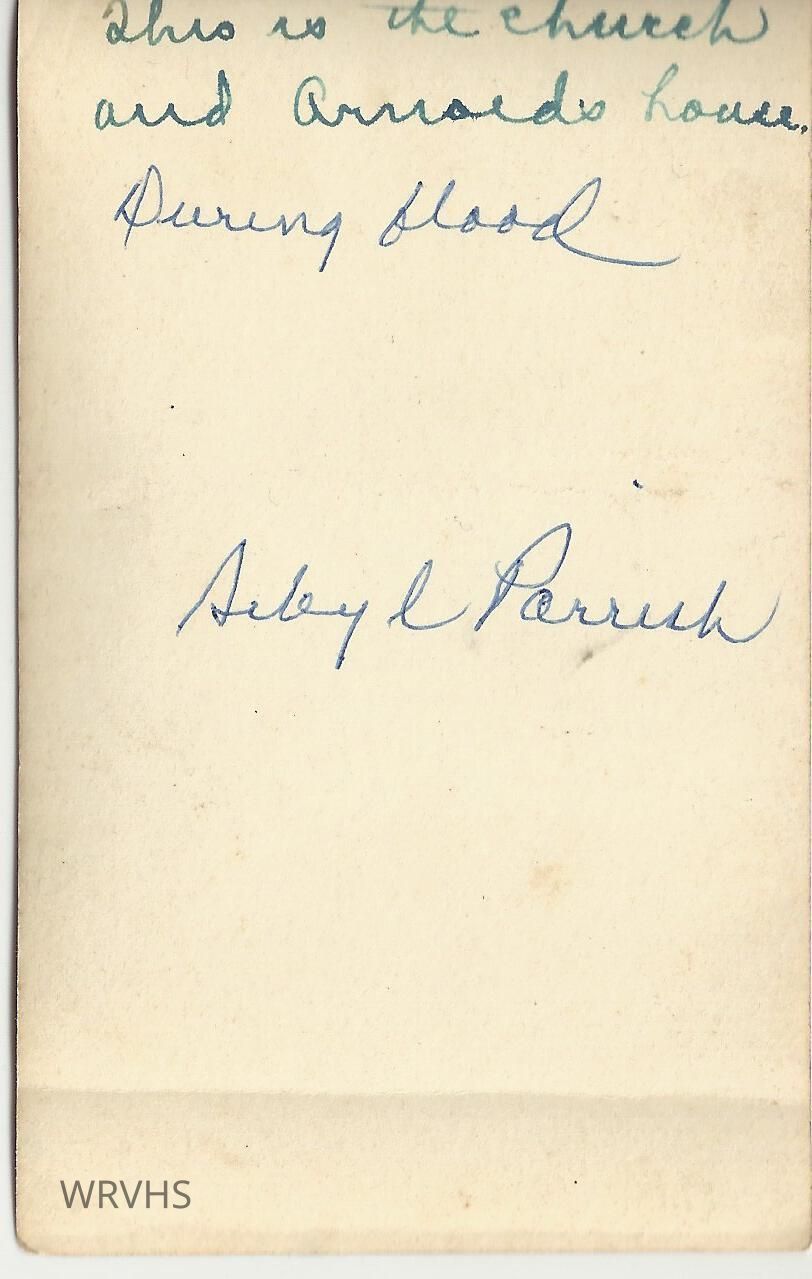 This is the church
and Arnold's house.
During flood
Sibyl Parrish
WRVHS